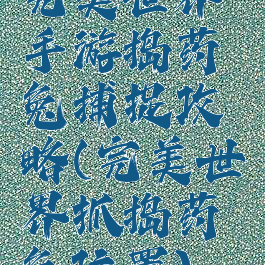 完美世界
手游捣药
兔捕捉攻
略(完美世
界抓捣药
兔位置)